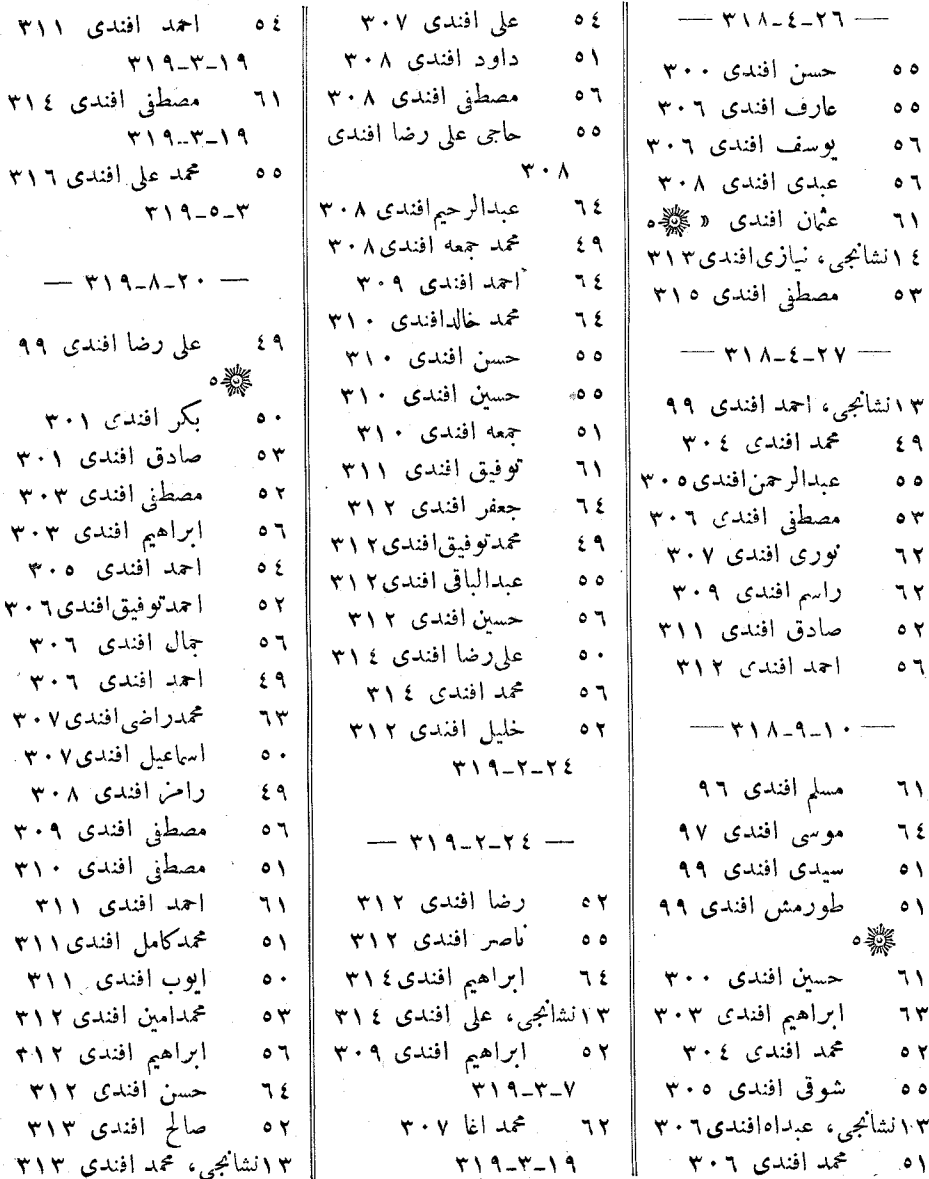 — ٣١٨-٤-٢٦ —
٥٥ حسن افندی ٣٠٠
٥٥ عارف افندی ٣٠٦
٥٦ یوسف افندی ٣٠٦
٥٦ عبدی افندی ٣٠٨
٦١ عثمان افندی » ۵
١٤ نشانجی، نیازی افندی ٣١٣
٥٣ مصطفی افندی ٣١٥
— ٣١٨-٤-٢٧ —
١٣ نشانجی، احمد افندی ٩٩
٤٩ محمد افندی ٣٠٤
٥٥ عبدالرحمن افندی ٣٠٥
٥٣ مصطفی افندی ٣٠٦
٦٢ نوری افندی ٣٠٧
٦٢ راسم افندی ٣٠٩
٥٢ صادق افندی ٣١١
٥٦ احمد افندی ٣١٢
— ٣١٨-٩-١٠ —
٦١ مسلم افندی ٩٦
٦٤ موسی افندی ٩٧
٥١ سیدی افندی ٩٩
٥١ طورمش افندی ٩٩
۵
٦١ حسین افندی ٣٠٠
٦٣ ابراهیم افندی ٣٠٣
٥٢ محمد افندی ٣٠٤
٥٥ شوقی افندی ٣٠٥
١٣ نشانجی، عبداه افندی ٣٠٦
٥١ محمد افندی ٣٠٦
٥٤ علی افندی ٣٠٧
٥١ داود افندی ٣٠٨
٥٦ مصطفی افندی ٣٠٨
٥٥ حاجی علی رضا افندی
٣٠٨
٦٤ عبدالرحیم افندی ٣٠٨
٤٩ محمد جمعه افندی ٣٠٨
٦٤ احمد افندی ٣٠٩
٦٤ محمد خالد افندی ٣١٠
٥٥ حسن افندی ٣١٠
٥٥ حسین افندی ٣١٠
٥١ جمعه افندی ٣١٠
٦١ توفیق افندی ٣١١
٦٤ جعفر افندی ٣١٢
٤٩ محمد توفیق افندی ٣١٢
٥٥ عبدالباقی افندی ٣١٢
٥٦ حسین افندی ٣١٢
٥٠ علی رضا افندی ٣١٤
٥٦ محمد افندی ٣١٤
٥٢ خلیل افندی ٣١٢
٣١٩-٢-٢٤
— ٣١٩-٢-٢٤ —
٥٢ رضا افندی ٣١٢
٥٥ ناصر افندی ٣١٢
٦٤ ابراهیم افندی ٣١٤
١٣ نشانجی، علی افندی ٣١٤
٥٢ ابراهیم افندی ٣٠٩
٣١٩-٣-٧
٦٢ محمد اغا ٣٠٧
٣١٩-٣-١٩
٥٤ احمد افندی ٣١١
٣١٩-٣-١٩
٦١ مصطفی افندی ٣١٤
٣١٩-٣-١٩
٥٥ محمد علی افندی ٣١٦
٣١٩-٥-٣
— ٣١٩-٨-٢٠ —
٤٩ علی رضا افندی ٩٩
۵
٥٠ بکر افندی ٣٠١
٥٣ صادق افندی ٣٠١
٥٢ مصطفی افندی ٣٠٣
٥٦ ابراهیم افندی ٣٠٣
٥٤ احمد افندی ٣٠٥
٥٢ احمد توفیق افندی ٣٠٦
٥٦ جمال افندی ٣٠٦
٤٩ احمد افندی ٣٠٦
٦٣ محمد راضی افندی ٣٠٧
٥٠ اسماعیل افندی ٣٠٧
٤٩ رامز افندی ٣٠٨
٥٦ مصطفی افندی ٣٠٩
٥١ مصطفی افندی ٣١٠
٦١ احمد افندی ٣١١
٥١ محمد کامل افندی ٣١١
٥٠ ایوب افندی ٣١١
٥٣ محمد امین افندی ٣١٢
٥٦ ابراهیم افندی ٣١٢
٦٤ حسن افندی ٣١٢
٥٢ صالح افندی ٣١٣
١٣ نشانجی، محمد افندی ٣١٣